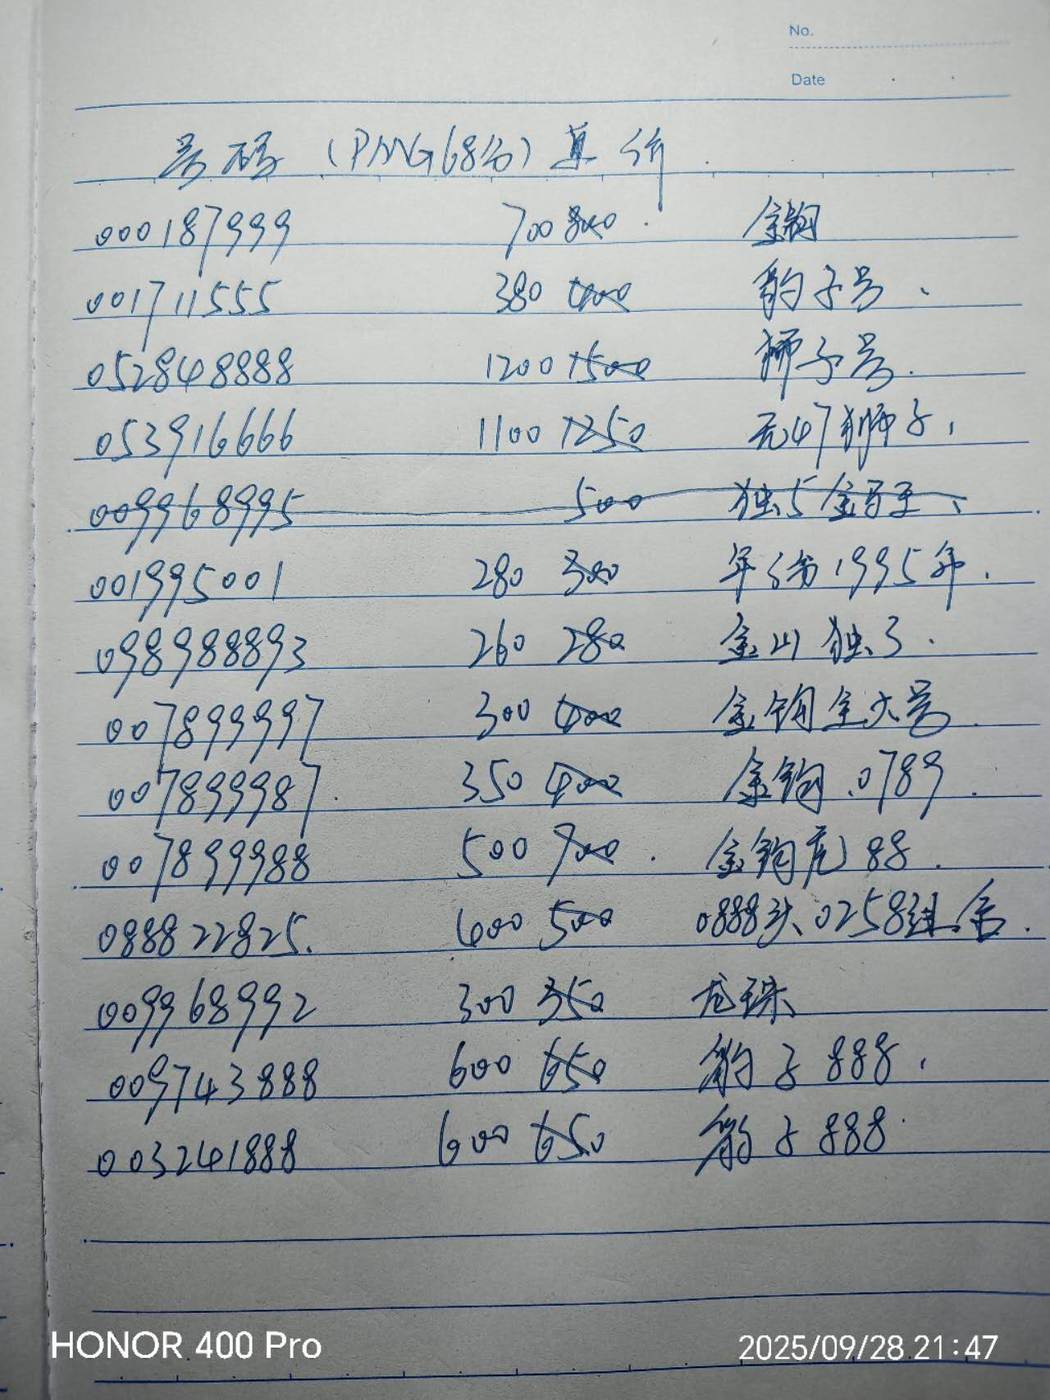 No.
Date
号码 (PMG68分) 真 价.
000187999 700 800. 金钢
001711555 380 400 豹子号、
052848888 1200 1500 狮子号.
053916666 1100 1250 无47狮子,
009968995 500 独5金百至、
001995001 280 300 年份1995年.
098988893 260 280 金山独3.
007899997 300 400 金钩全大号
007899987. 350 400 金钩.0789.
007899988 500 700. 金钩虎88.
088822825. 400 500 0888头、0258组合.
009968992 300 350 龙珠
009743888 600 650 豹子888.
003241888 600 650 豹子888.
HONOR 400 Pro
2025/09/28 21:47